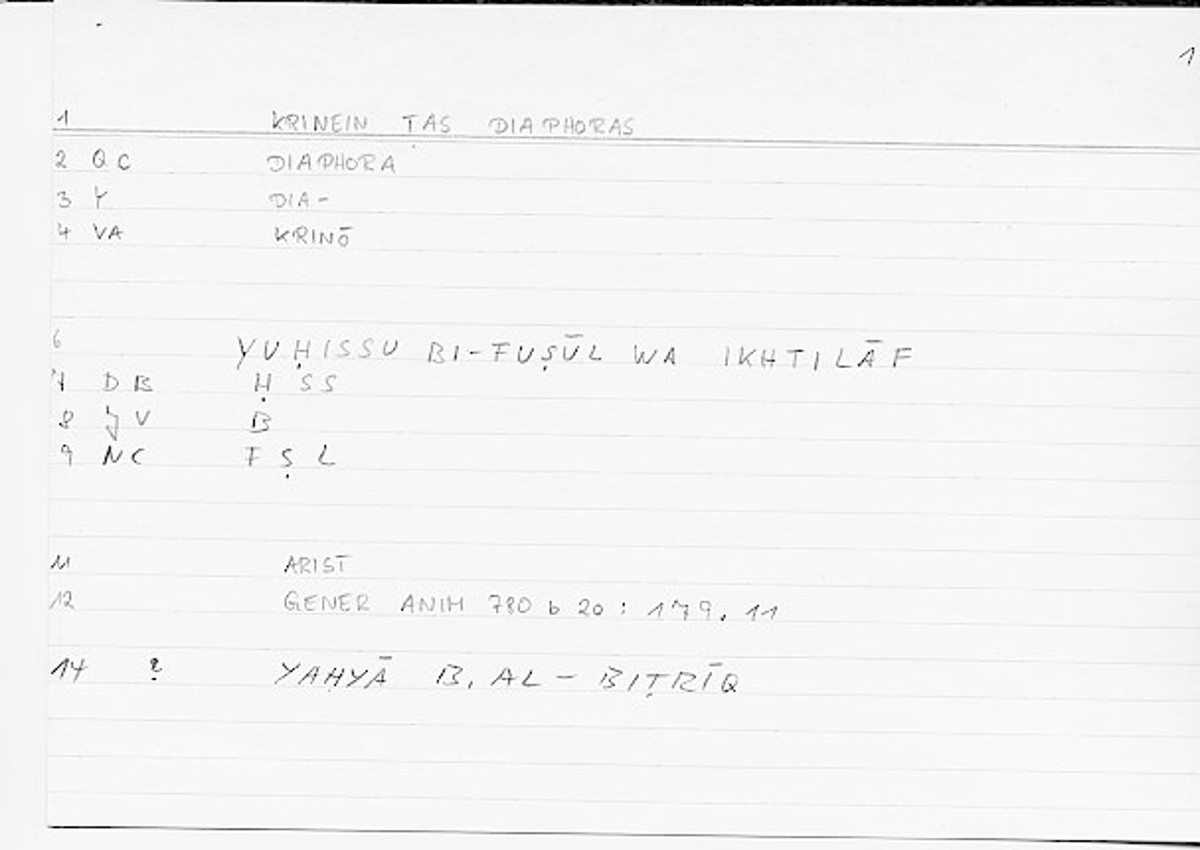 1
1 KRINEIN TAS DIAPHORAS
2 QC DIAPHORA
3 Y DIA-
4 VA KRINŌ
6 YUḤISSU BI-FUṢŪL WA IKHTILĀF
7 DB Ḥ SS
8 JV B
9 NC F Ṣ L
11 ARIST
12 GENER ANIM 780 b 20 : 179. 11
14 ? YAḤYĀ B. AL-BIṬRĪQ